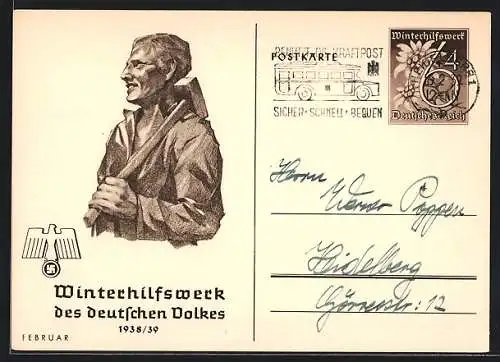 BENUTZT DIE KRAFTPOST
POSTKARTE
SICHER + SCHNELL + BEQUEM
Winterhilfswerk
6+4
Deutsches Reich
Herrn
Werner Poppen
Heidelberg
Görresstr. 12
Winterhilfswerk
des deutschen Volkes
1938/39
FEBRUAR